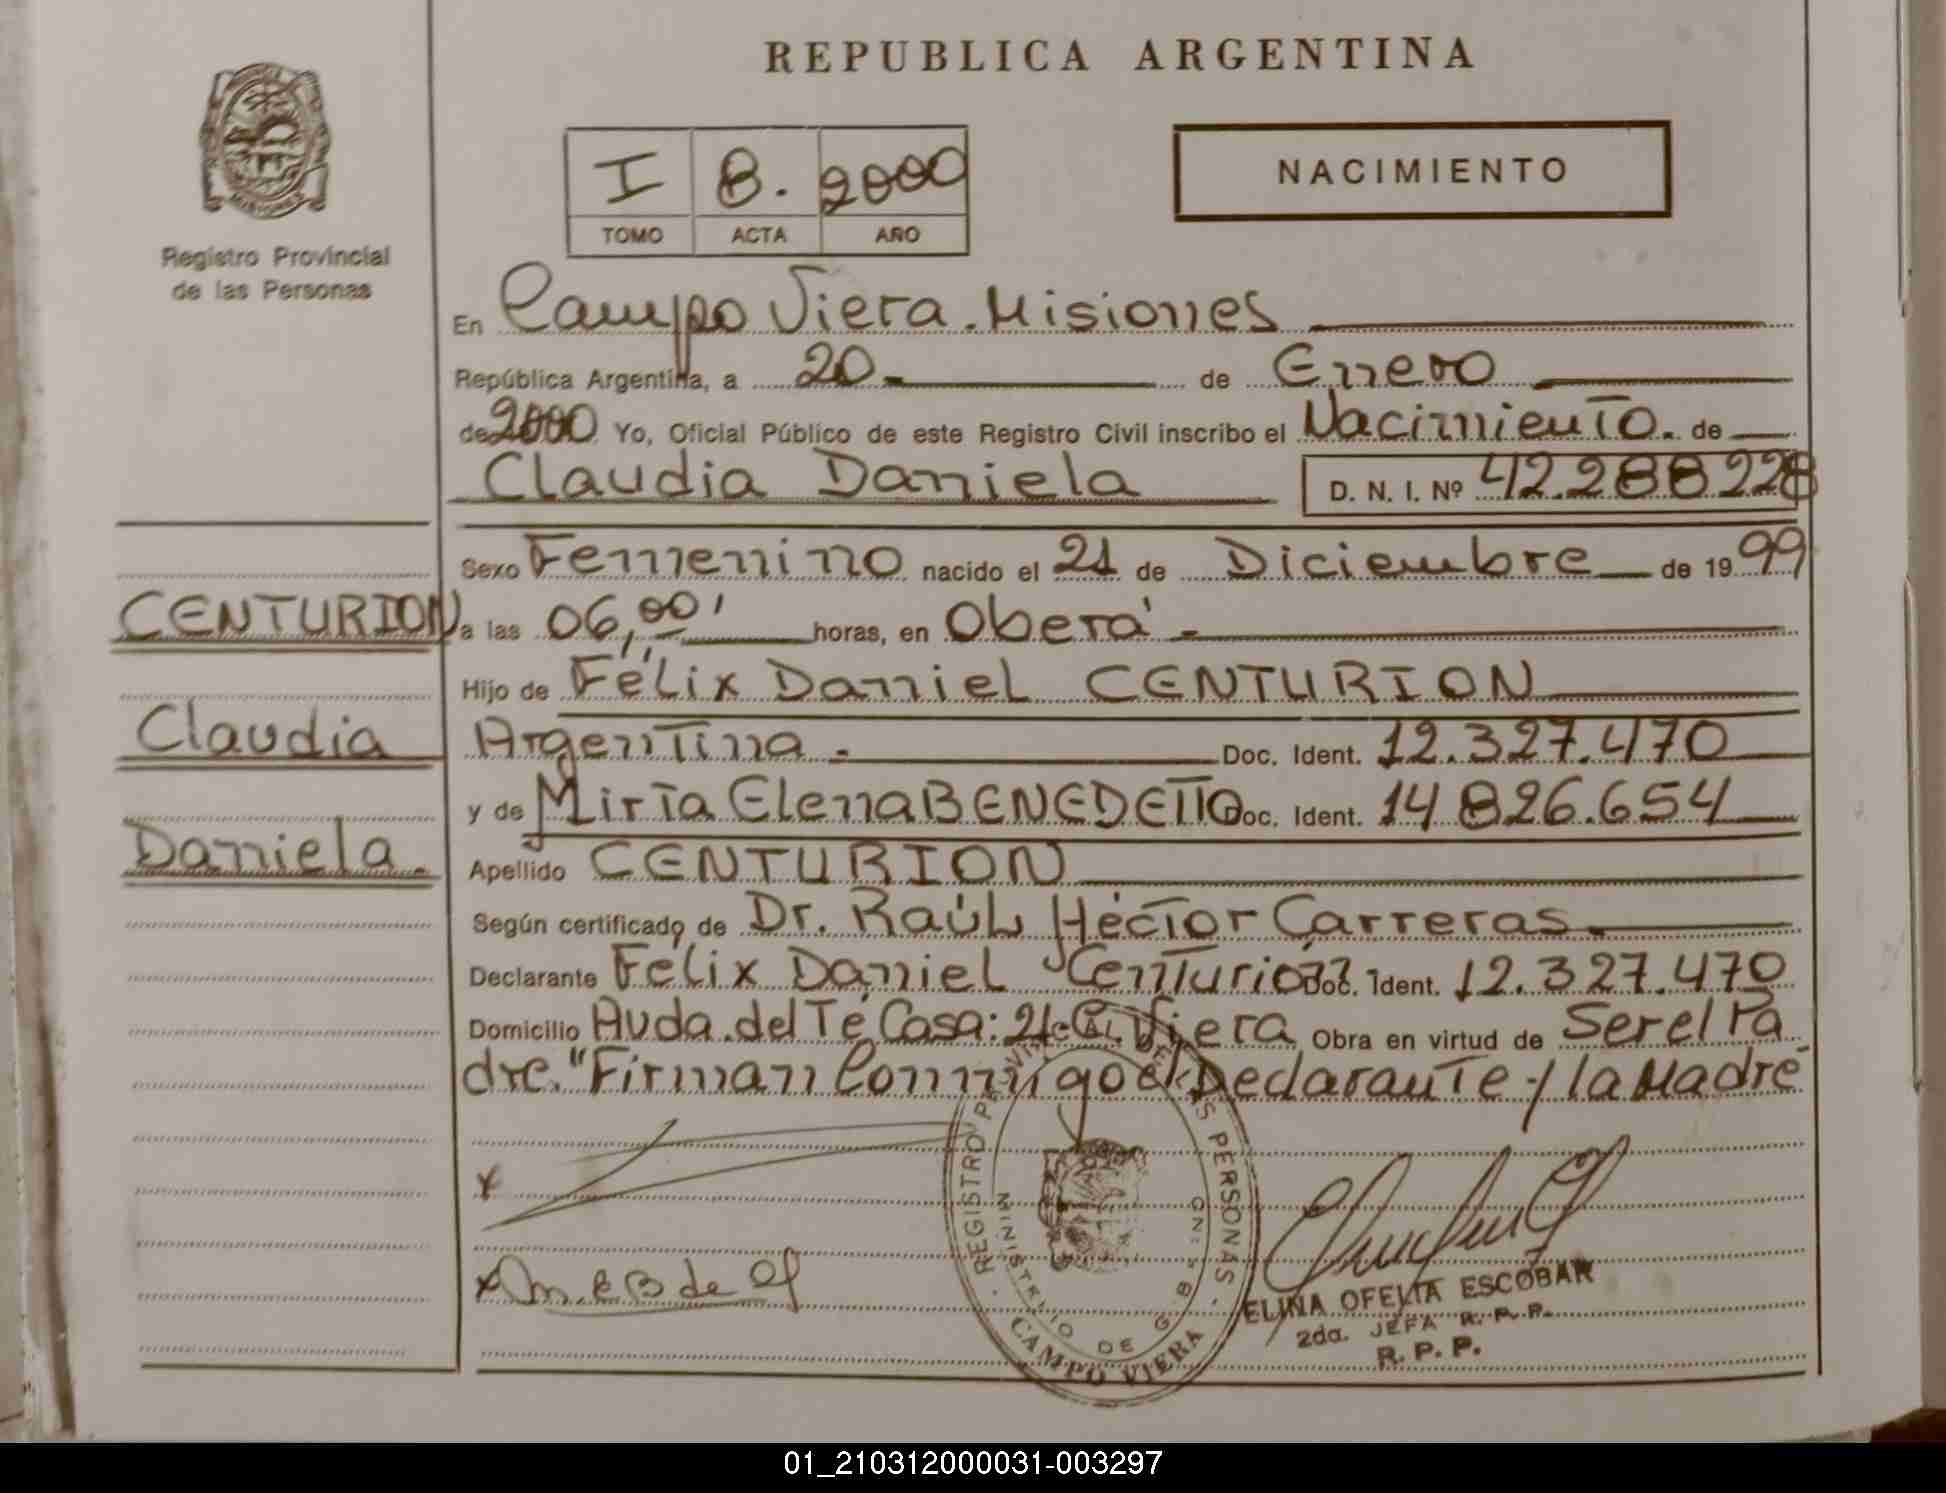 REPUBLICA ARGENTINA
MISIONES
Registro Provincial
de las Personas
I 8. 2000
TOMO ACTA AÑO
NACIMIENTO
En Campo Viera. Misiones
República Argentina, a 20 de Enero
de 2000 Yo, Oficial Público de este Registro Civil inscribo el Nacimiento. de
Claudia Daniela D. N. I. Nº 42.288228
Sexo Femenino nacido el 21 de Diciembre de 1999
CENTURION
a las 06,00' horas, en Oberá
Hijo de Félix Daniel CENTURION
Claudia
Argentina. Doc. Ident. 12.327.470
y de Mirta Elena BENEDETTO Doc. Ident. 14826.654
Daniela.
Apellido CENTURION
Según certificado de Dr. Raúl Héctor Carreras.
Declarante Félix Daniel Centurion Doc. Ident. 12.327.470
Domicilio Avda. del Té Casa: 21-C. Viera Obra en virtud de Ser el Pa
dre. "Firman Conmigo el Declarante y la Madre
x
x M.E B de
REGISTRO PROVINCIAL DE LAS PERSONAS
MINISTERIO DE GOB
CAMPO VIERA
ELINA OFELIA ESCOBAR
2da. JEFA R. P. P.
R. P. P.
01_210312000031-003297